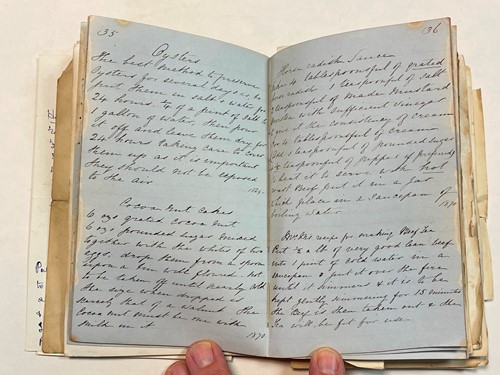 35
Oysters
The best method to preserve
Oysters for several days is to
put them in salt & water for
24 hours ½ of a pint of salt to
1 gallon of water, then pour
it off and leave them dry for
24 hours taking care to cover
them up as it is important
they should not be exposed
to the air
Cocoa nut cakes
6 ozs grated cocoa nut
6 ozs pounded sugar mixed
together with the whites of two
eggs, drop them from a spoon
upon a tin well floured. not
to be taken off until nearly cold
the size when dropped is
nearly that of a walnut. The
cocoa nut must be one with
milk in it
1870
36
Horse radish Sauce
4 tablespoonsful of grated
horse radish 1 teaspoonful of salt
teaspoonful of made Mustard
with sufficient vinegar
to give it the consistency of cream
or 4 tablespoonsful of cream
add 1 teaspoonful of pounded sugar
½ teaspoonful of pepper if preferred
to heat it to serve with hot
roast Beef put it in a jar
& place in a saucepan of
boiling water
1870
receipe for making Beef Tea
Put ½ a lb of very good lean beef
into 1 pint of cold water in a
saucepan & put it over the fire
until it simmers & it is to be
kept gently simmering for 15 minutes
the Beef is then taken out & the
Tea will be fit for use